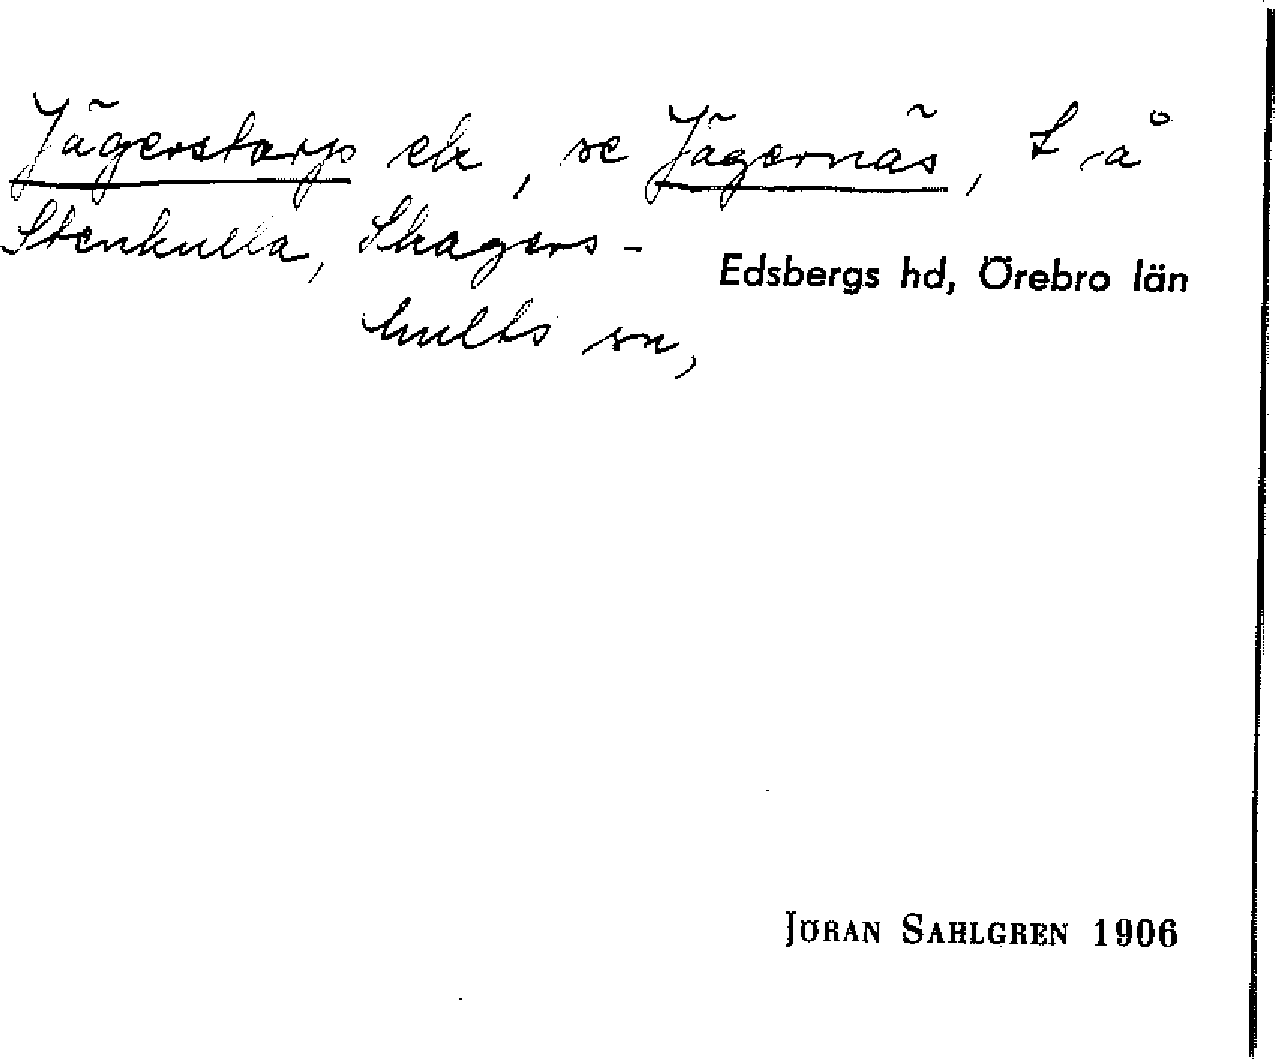 Jägerstorp ek, se Jägernäs, t å
Stenkulla, Skagers-
Edsbergs hd, Örebro län
hults sn,
JÖRAN SAHLGREN 1906